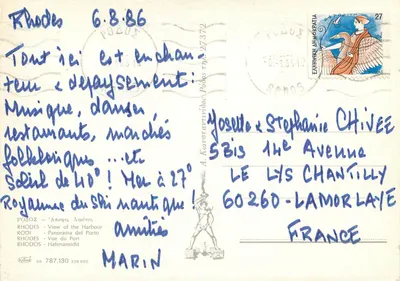 Rhodes 6.8.86
Tout ici est enchan-
teur & dépaysement :
Musique, danses
restaurants, marchés
folkloriques ... etc
Soleil de 40° ! Mer à 27°
Royaume du ski nautique !
amitiés
MARIN
ΡΟΔΟΣ
RHODES - View of the Harbour
RODI - Panorama del Porto
RHODES - Vue du Port
RHODOS - Hafenansicht
787.130
27
ΕΛΛΗΝΙΚΗ ΔΗΜΟΚΡΑΤΙΑ
ΡΟΔΟΣ
RODOS
Josette & Stephanie CHIVEE
5 Bis 14e Avenue
LE LYS CHANTILLY
60260 - LAMORLAYE
FRANCE